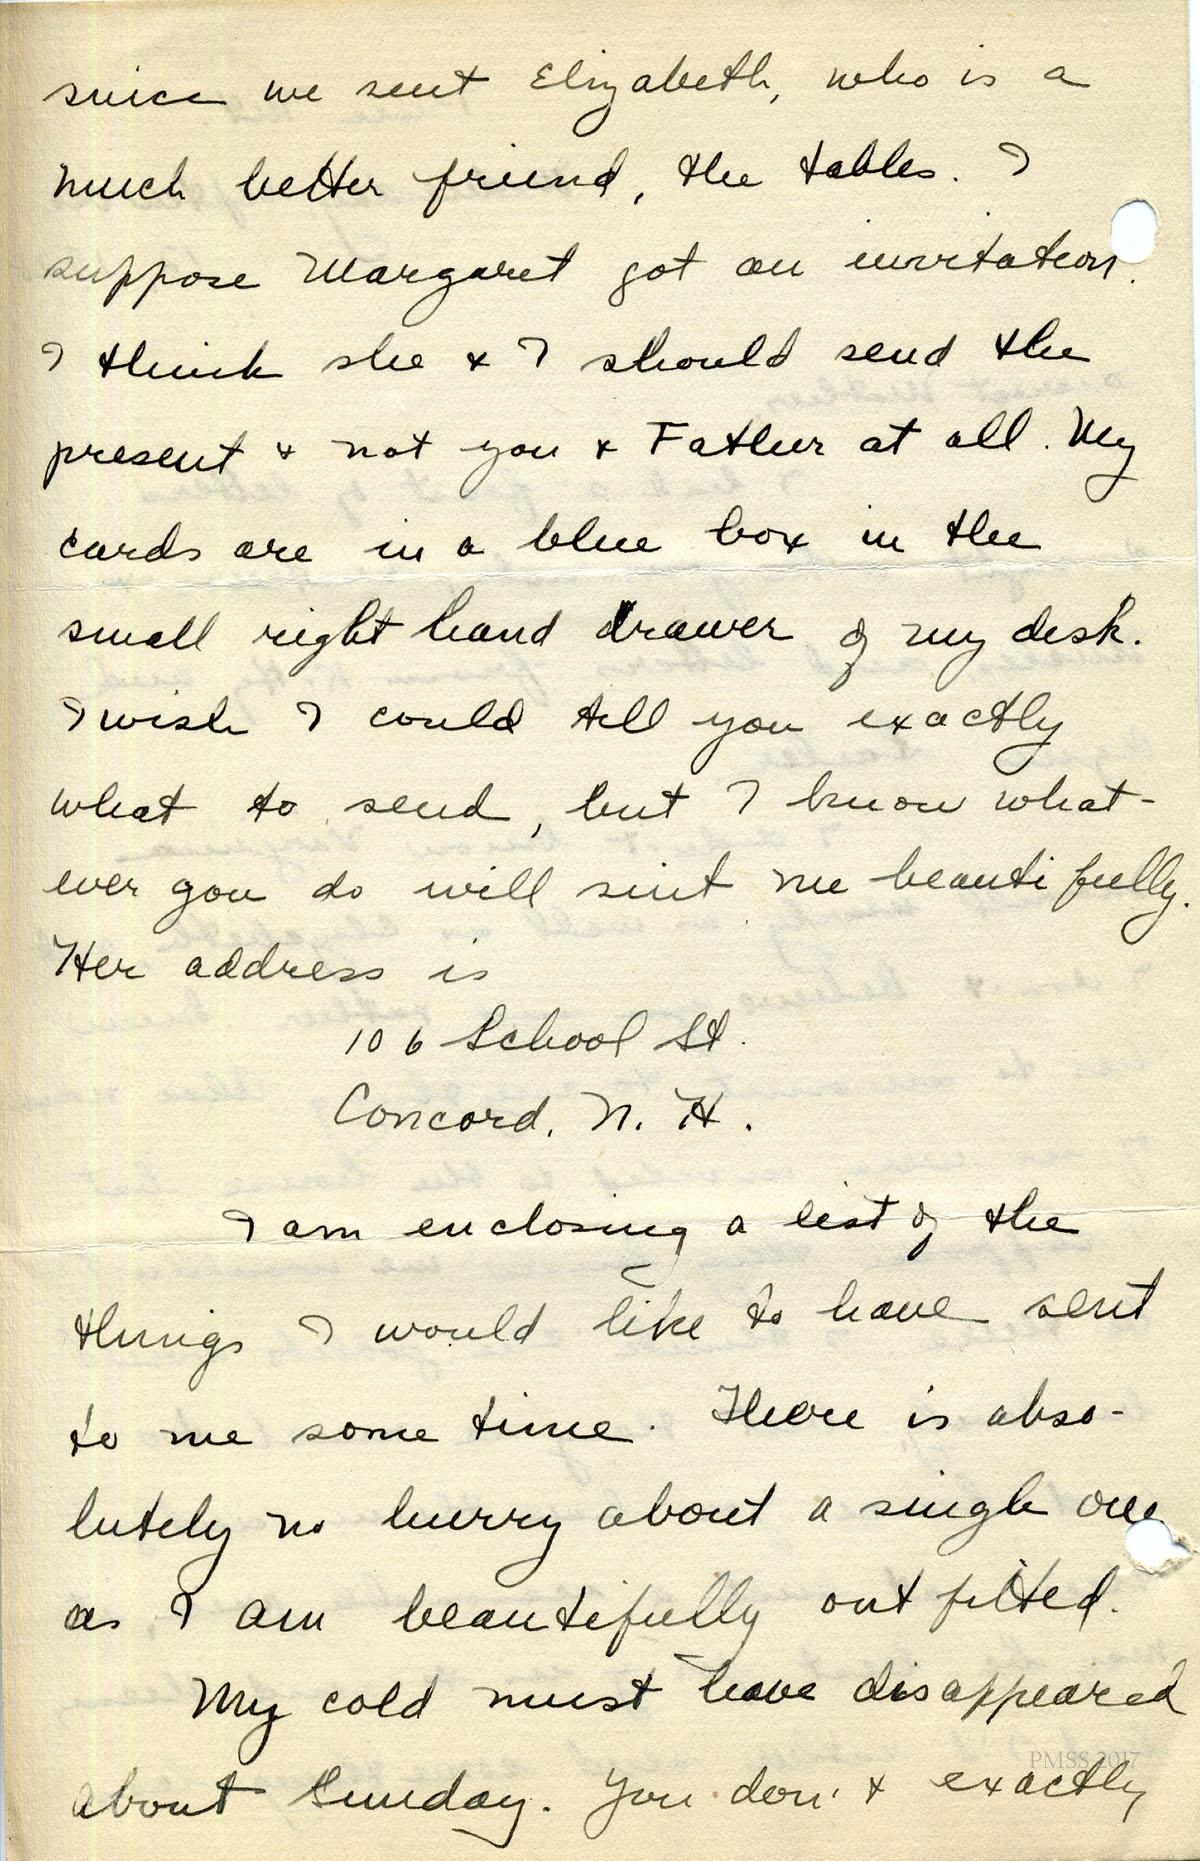 since we sent Elizabeth, who is a
much better friend, the tables. I
suppose Margaret got an invitation.
I think she & I should send the
present & not you & Father at all. My
cards are in a blue box in the
small right hand drawer of my desk.
I wish I could tell you exactly
what to send, but I know what-
ever you do will suit me beautifully.
Her address is
106 School St.
Concord, N. H.
I am enclosing a list of the
things I would like to have sent
to me some time. There is abso-
lutely no hurry about a single one
as I am beautifully outfitted.
My cold must have disappeared
about Sunday. You don't exactly
PMSS 2017